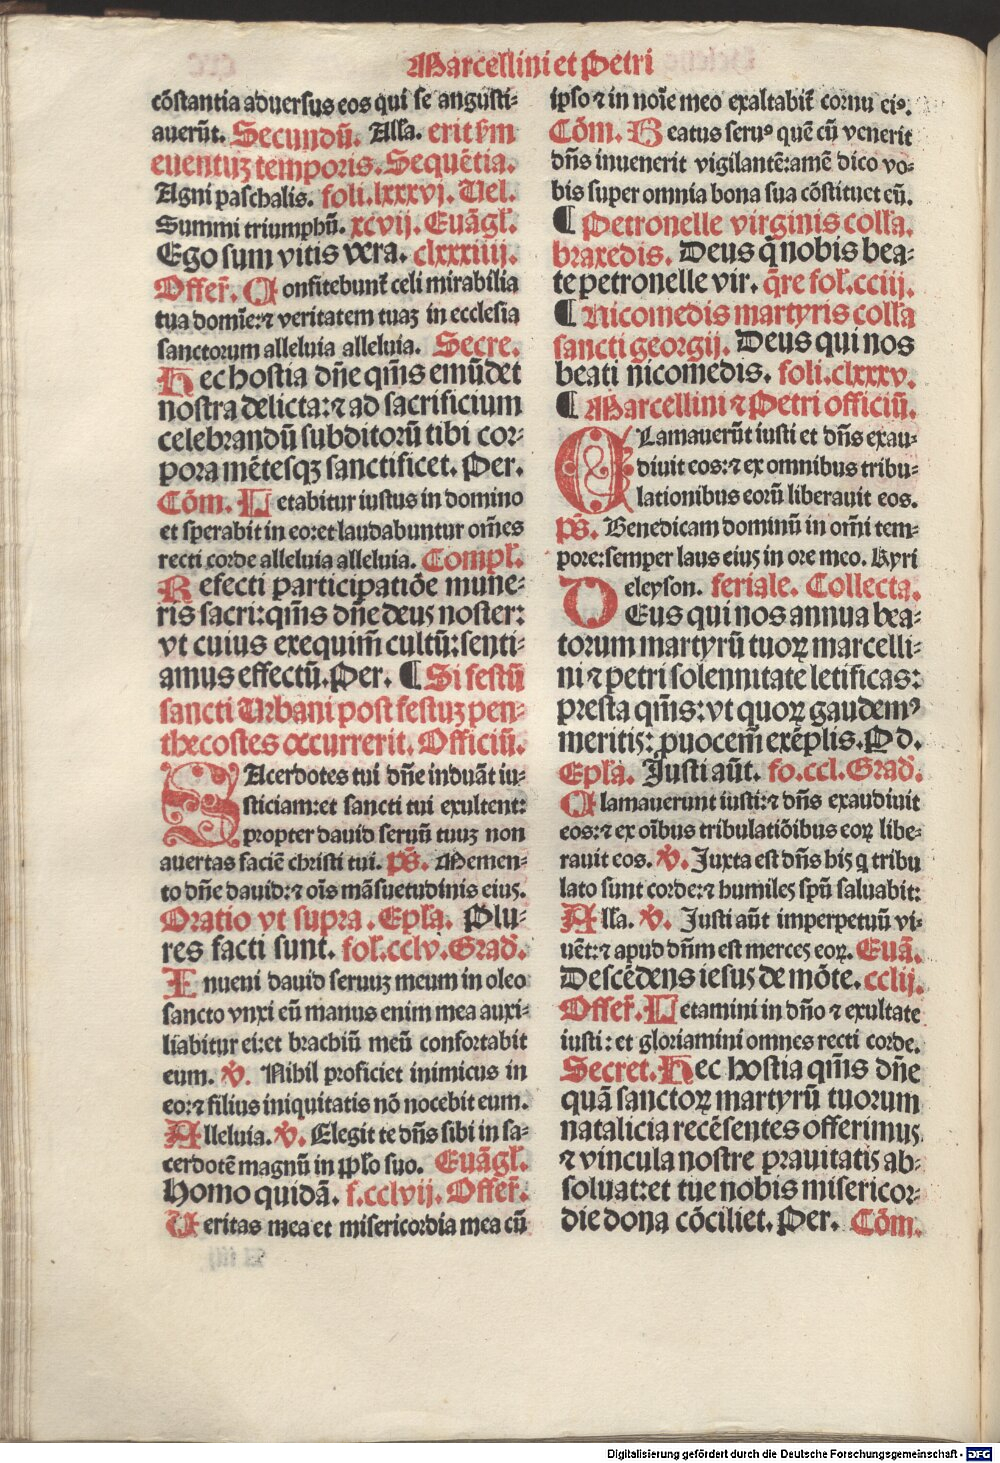 Marcellini et Petri
cōstantia aduersus eos qui se angusti-
auerūt. Secundū. Alľa. erit ẜm
euentuꝫ temporis. Sequētia.
Agni paschalis. foli. lxxxvj. Vel.
Summi triumphū. xcvij. Euāgľ.
Ego sum vitis vera. clxxxiiij.
Offer̄. Confitebunť celi mirabilia
tua domīe: ⁊ veritatem tuaꝫ in ecclesia
sanctorum alleluia alleluia. Secre.
Hec hostia dn̄e qm̄s emūdet
nostra delicta: ⁊ ad sacrificium
celebrandū subditorū tibi cor-
pora mētesqꝫ sanctificet. Per.
Cōm. Letabitur iustus in domino
et sperabit in eo: et laudabuntur om̄es
recti corde alleluia alleluia. Compľ.
Refecti participatiōe mune-
ris sacri: qm̄s dn̄e deus noster:
vt cuius exequim̄ cultū: senti-
amus effectū. Per. ¶ Si festū
sancti Urbani post festuꝫ pen-
thecostes occurrerit. Officiū.
SAcerdotes tui dn̄e induāt iu-
sticiam: et sancti tui exultent:
propter dauid seruū tuuꝫ non
auertas faciē christi tui. pš. Memen-
to dn̄e dauid: ⁊ oīs māsuetudinis eius.
Oratio vt supra. Epľa. Plu-
res facti sunt. foľ. cclv. Grad̄.
Inueni dauid seruuꝫ meum in oleo
sancto vnxi eū manus enim mea auxi-
liabitur ei: et brachiū meū confortabit
eum. ℣. Nihil proficiet inimicus in
eo: ⁊ filius iniquitatis nō nocebit eum.
Alleluia. ℣. Elegit te dn̄s sibi in sa-
cerdotē magnū in pplo suo. Euāgľ.
Homo quidā. f. cclvij. Offer̄.
Veritas mea et misericordia mea cū
ipso ⁊ in noīe meo exaltabiť cornu eiꝰ.
Cōm. Beatus seruꝰ quē cū venerit
dn̄s inuenerit vigilantē: amē dico vo-
bis super omnia bona sua cōstituet eū.
¶ Petronelle virginis colľa.
braxedis. Deus q̄ nobis bea-
te petronelle vir. q̄re foľ. cciij.
¶ Nicomedis martyris colľa
sancti georgij. Deus qui nos
beati nicomedis. foli. clxxxv.
¶ Marcellini ⁊ Petri officiū.
CLamauerūt iusti et dn̄s exau-
diuit eos: ⁊ ex omnibus tribu-
lationibus eorū liberauit eos.
pš. Benedicam dominū in om̄i tem-
pore: semper laus eius in ore meo. Kyri
eleyson. feriale. Collecta.
DEus qui nos annua bea-
torum martyrū tuoꝝ marcelli-
ni ⁊ petri solennitate letificas:
presta qm̄s: vt quoꝝ gaudemꝰ
meritis: ꝓuocem̄ exēplis. P d.
Epľa. Justi aūt. fo. ccl. Grad̄.
Clamauerunt iusti: ⁊ dn̄s exaudiuit
eos: ⁊ ex oībus tribulatiōibus eoꝝ libe-
rauit eos. ℣. Juxta est dn̄s his q̄ tribu
lato sunt corde: ⁊ humiles spū saluabit:
Alľa. ℣. Justi aūt imperpetuū vi-
uēt: ⁊ apud dn̄m est merces eoꝝ. Euā.
Descēdens iesus de mōte. cclij.
Offer̄. Letamini in dn̄o ⁊ exultate
iusti: et gloriamini omnes recti corde.
Secret. Hec hostia qm̄s dn̄e
quā sanctoꝝ martyrū tuorum
natalicia recēsentes offerimus
⁊ vincula nostre prauitatis ab-
soluat: et tue nobis misericor-
die dona cōciliet. Per. Cōm.
Digitalisierung gefördert durch die Deutsche Forschungsgemeinschaft - DFG